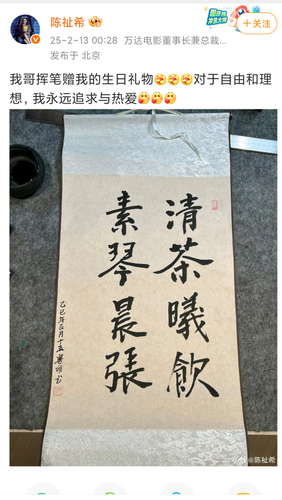 陈祉希
+关注
25-2-13 00:28 万达电影董事长兼总裁...
发布于 北京
我哥挥笔赠我的生日礼物对于自由和理
想，我永远追求与热爱
清茶曦飲
素琴晨張
乙巳年正月十五
@陈祉希